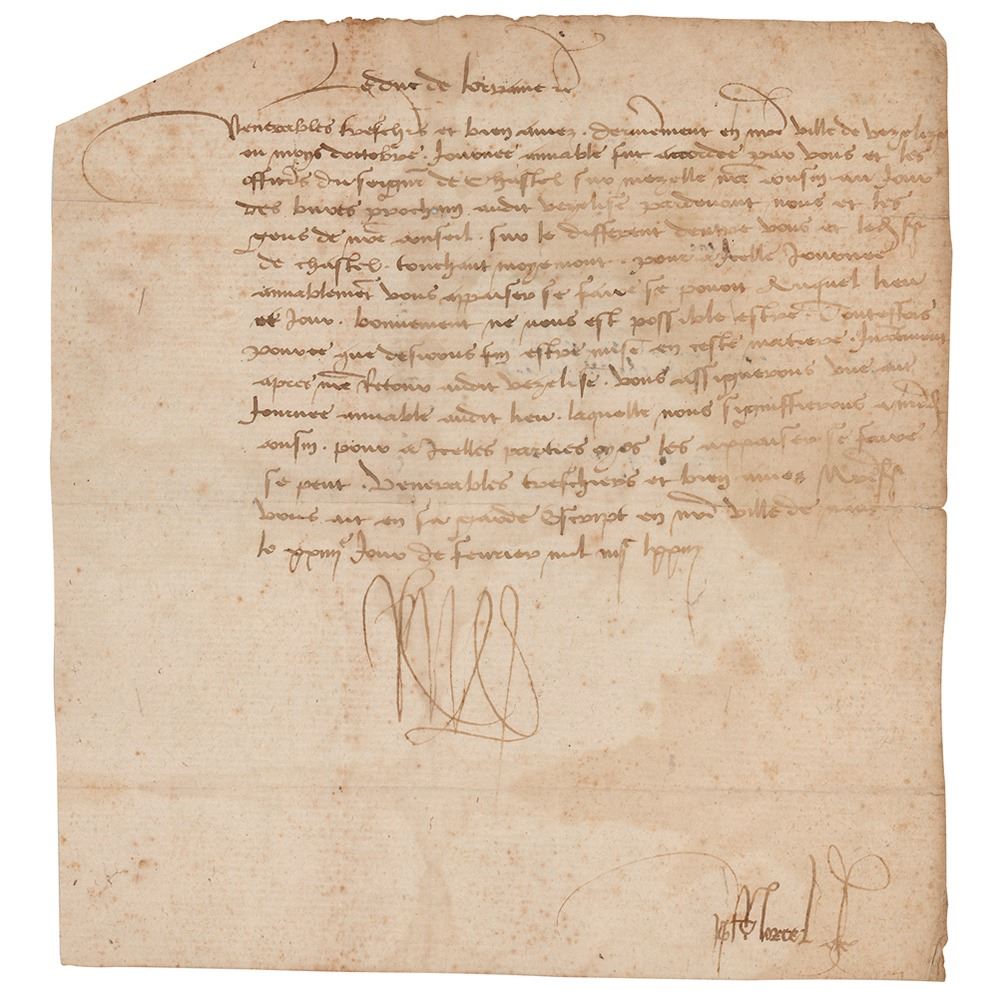 Le duc de lorraine &c
Venerables treschiers et bien amez. derrenierement en nre ville de vezelize
ou moys doctobre. Journee amiable fut accordee par vous et les
officiers du seigneur de Chastel sur mezelle nre cousin au Jour
des bures prochain audit vezelise pardevant nous et les
gens de nre conseil. sur le different dentre vous et led
de chastel. touchant moyemont. pour a Icelle Journee
amiablement vous appaiser se faire se povoit Auquel lieu
et Jour. bonnement ne nous est possible estre. Toutesfois
pource que desirons fin estre mise en ceste matiere. Incontinent
apres nre Retour audit vezelise. vous assignerons une aut
Journee amiable audit lieu. laquelle nous signiffierons a
cousin. pour a Icelles parties oyes les appaiser se faire
se peut. Venerables treschiers et bien amez
vous ait en sa garde Escript en nre ville de
le Jour de fevrier mil